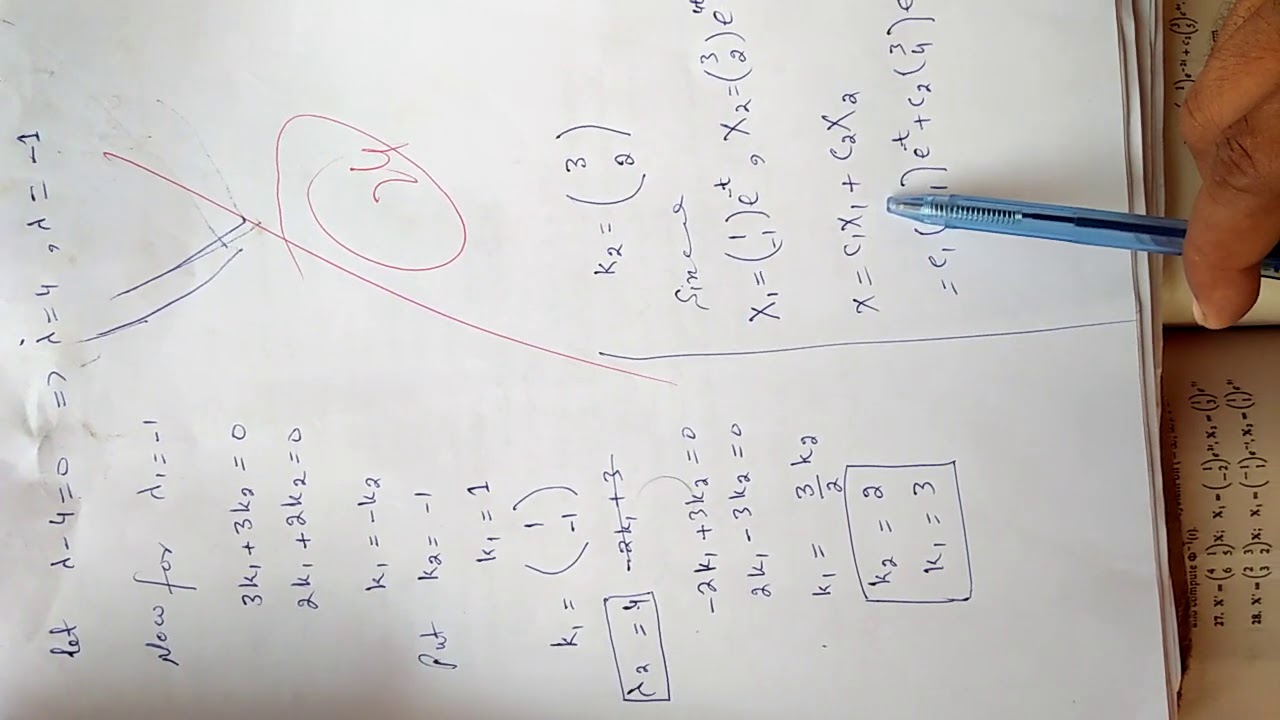 let λ-4=0 => λ=4, λ=-1
Now for λ₁=-1
3k₁+3k₂=0
2k₁+2k₂=0
k₁=-k₂
put k₂=-1
k₁=1
k₁=(1 -1)
λ₂=4 -2k₁+3
-2k₁+3k₂=0
2k₁-3k₂=0
k₁=3/2 k₂
k₂=2
k₁=3
24
k₂=(3 2)
Since
X₁=(1 -1)e⁻ᵗ, X₂=(3 2)e
X=c₁X₁+c₂X₂
=c₁( 1)e⁻ᵗ+c₂(3 4)e
and compute Φ⁻¹(t).
27. X'=(4 1 6 5)X; X₁=(1 -2)e²ᵗ, X₂=(1 3)e⁷ᵗ
28. X'=(2 3 3 2)X; X₁=(-1 1)e⁻ᵗ, X₂=(1 1)e⁵ᵗ